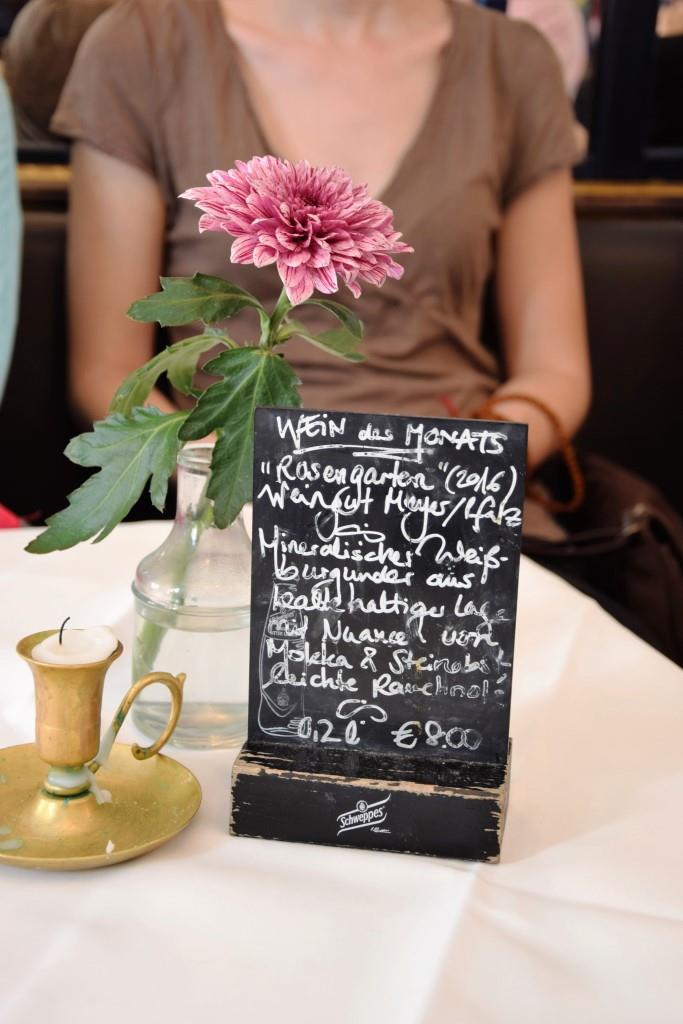 WEIN des MONATS
"Rosengarten" (2016)
Weingut Meyer/Pfalz
Mineralischer Weiß-
burgunder aus
kalkhaltiger
mit Nuance vom
Mokka &
leichte
0,2l. €8.00
Schweppes